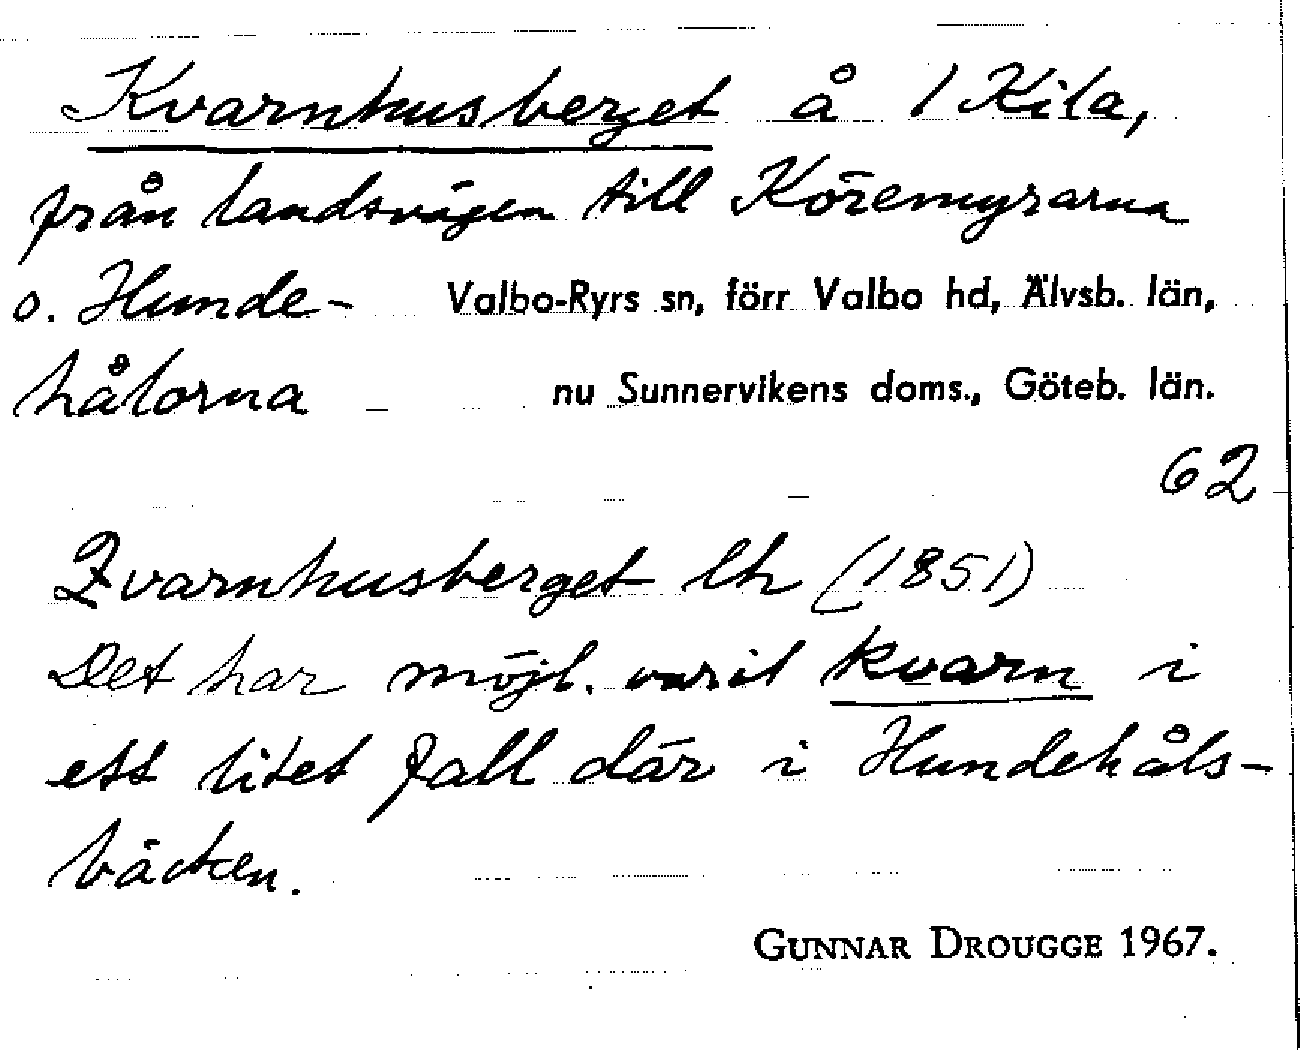 Kvarnhusberget å 1 Kila,
från landsvägen till Köremyrarna
o. Hunde-
Valbo-Ryrs sn, förr Valbo hd, Älvsb. län,
hålorna
nu Sunnervikens doms., Göteb. län.
62
Qvarnhusberget lh (1851)
Det har möjl. varit kvarn i
ett litet fall där i Hundehåls-
bäcken.
GUNNAR DROUGGE 1967.